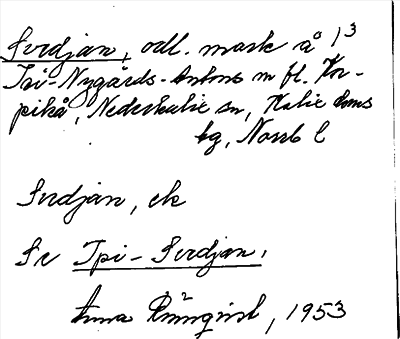 Serdjan, odl. mark å 1³
Ipi-Nygårds-Antons m fl. Kor-
pikå, Nederkalix sn, Kalix
bg, Norrb l
Serdjan, ek
Se Ipi-Serdjan.
Anna, 1953